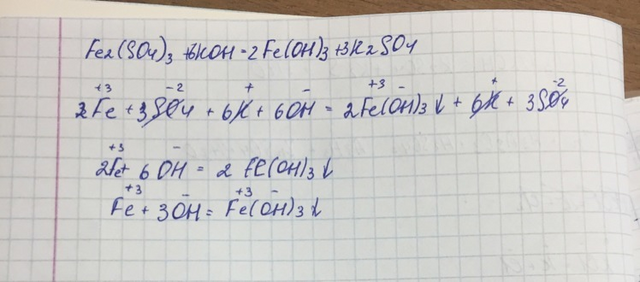 Fe2(SO4)3 + 6KOH = 2Fe(OH)3 + 3K2SO4
2Fe⁺³ + 3SO4⁻² + 6K⁺ + 6OH⁻ = 2Fe⁺³(OH)⁻3↓ + 6K⁺ + 3SO4⁻²
2Fe⁺³ + 6OH⁻ = 2Fe(OH)3↓
Fe⁺³ + 3OH⁻ = Fe⁺³(OH)⁻3↓